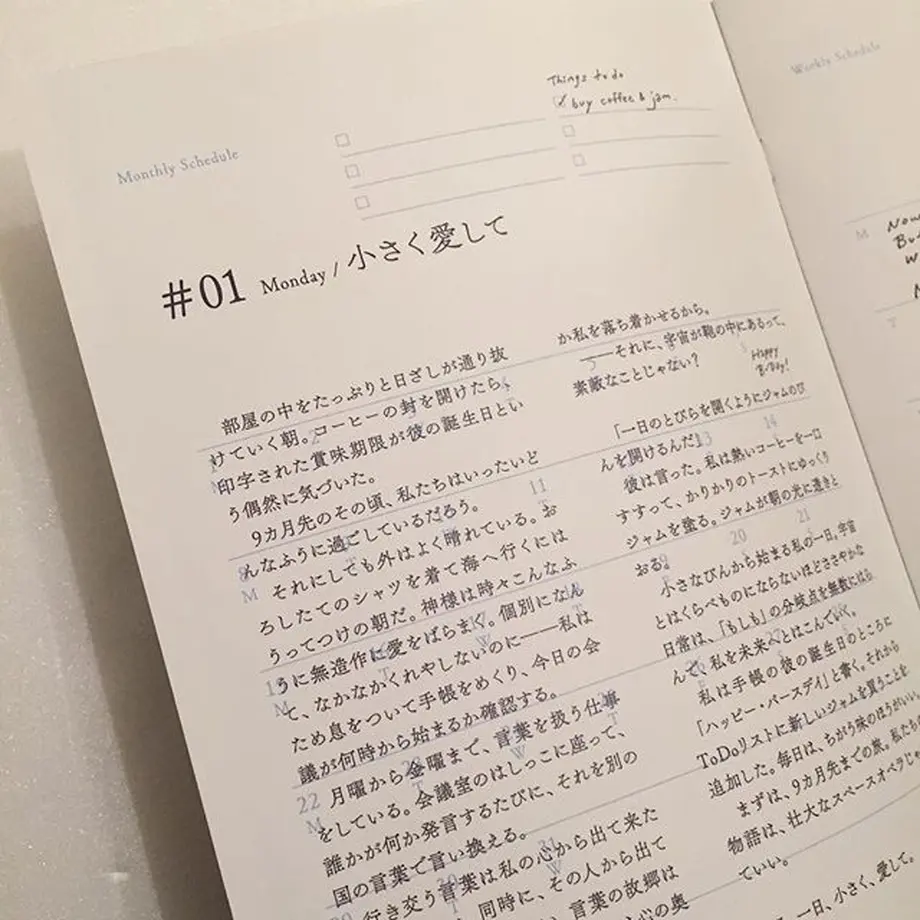 Monthly Schedule
Things to do
buy coffee & jam.
#01 Monday / 小さく愛して
部屋の中をたっぷりと日ざしが通り抜
けていく朝。コーヒーの封を開けたら、
印字された賞味期限が彼の誕生日とい
う偶然に気づいた。
9カ月先のその頃、私たちはいったいど
んなふうに過ごしているだろう。
それにしても外はよく晴れている。お
ろしたてのシャツを着て海へ行くには
うってつけの朝だ。神様は時々こんなふ
うに無造作に愛をばらまく。個別になん
て、なかなかくれやしないのに——私は
ため息をついて手帳をめくり、今日の会
議が何時から始まるか確認する。
月曜から金曜まで、言葉を扱う仕事
をしている。会議室のはしっこに座って、
誰かが何か発言するたびに、それを別の
国の言葉で言い換える。
行き交う言葉は私の心から出て来た
同時に、その人から出て
言葉の故郷は
心の奥
か私を落ち着かせるから。
——それに、宇宙が鞄の中にあるって、
素敵なことじゃない?
Happy
B-Day!
「一日のとびらを開くようにジャムのび
んを開けるんだ」
彼は言った。私は熱いコーヒーを一口
すすって、かりかりのトーストにゆっくり
ジャムを塗る。ジャムが朝の光に透きと
おる。
小さなびんから始まる私の一日。宇宙
とはくらべものにならないほどささやかな
日常は、「もしも」の分岐点を無数にはら
んで、私を未来へとはこんでいく。
私は手帳の彼の誕生日のところに
「ハッピー・バースデイ」と書く。それから
ToDoリストに新しいジャムを買うことを
追加した。毎日は、ちがう味のほうがいい。
まずは、9カ月先までの旅。私たちの
物語は、壮大なスペースオペラじゃ
ていい。
一日、小さく、愛して。
2
11
13
14
20
21
22
M
T
W
Weekly Schedule
M
Now
Bu
W
T